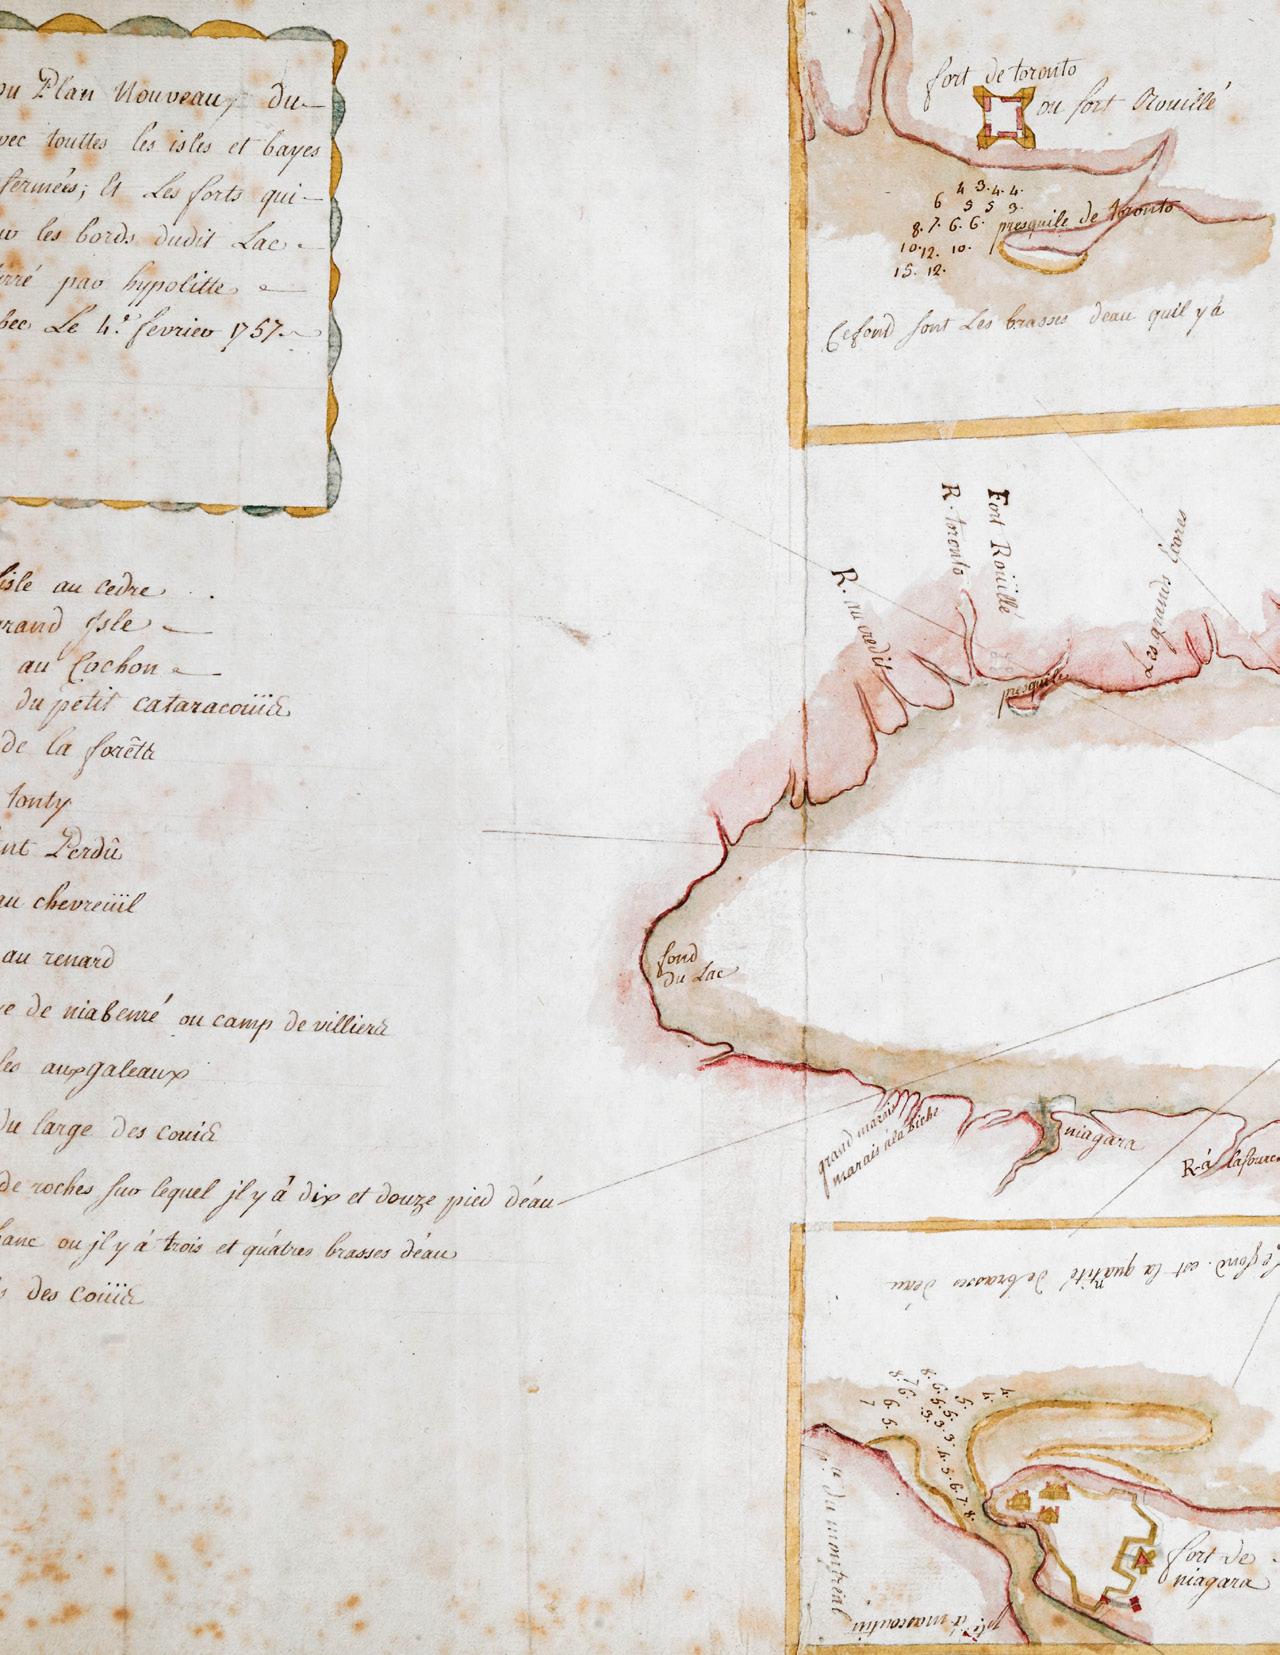 ou Plan Nouveau du
vec touttes les isles et bayes
fermées; Et Les forts qui
les bords dudit Lac
par hypolitte
bec Le 4.e fevrier 1757.
isle au cedre
grand Isle
au Cochon
du petit cataracoüi
de la forêtt
tonty
Perdû
au chevreüil
au renard
de niabenré ou camp de villiers
aux galeaux
Du large des couis
de roches sur lequel jl y â dix et douze pied déau
banc ou jl y à trois et quátres brasses déau
des coüis
fort de toronto
ou fort Roüillé
4 3. 4. 4.
6 5 5 3.
8. 7. 6. 6. presquile de toronto
10. 12. 10.
15. 12.
Ce fond sont Les brasses deau quil y à
R. toronto
Fort Roüillé
Les grands Ecores
R. au credit
presquile
fond
du Lac
grand marais
marais à la Biche
niagara
R. à la fource
Le fond est la quantité de brasses déau
fort de
niagara
du montreal
pte à mascoutin